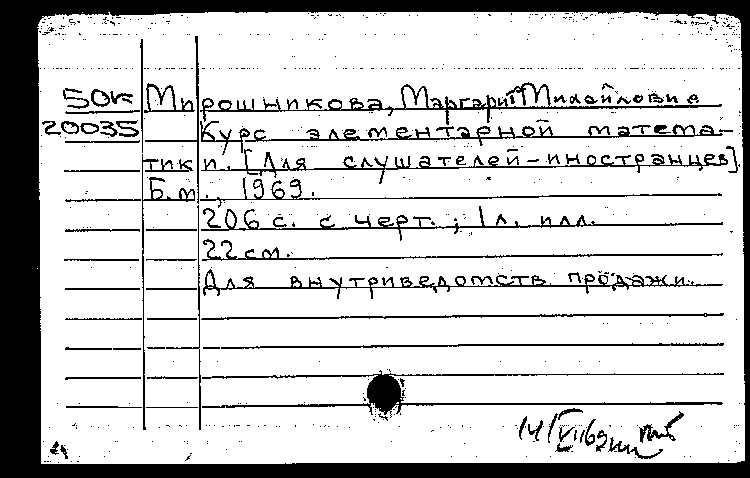 50к Мирошникова, Маргарит Михайловна
20035 Курс элементарной матема-
тики. [Для слушателей-иностранцев]
Б.м., 1969.
206 с. с черт.; 1 л. илл.
22 см.
Для внутриведомств. продажи.
14/VII69